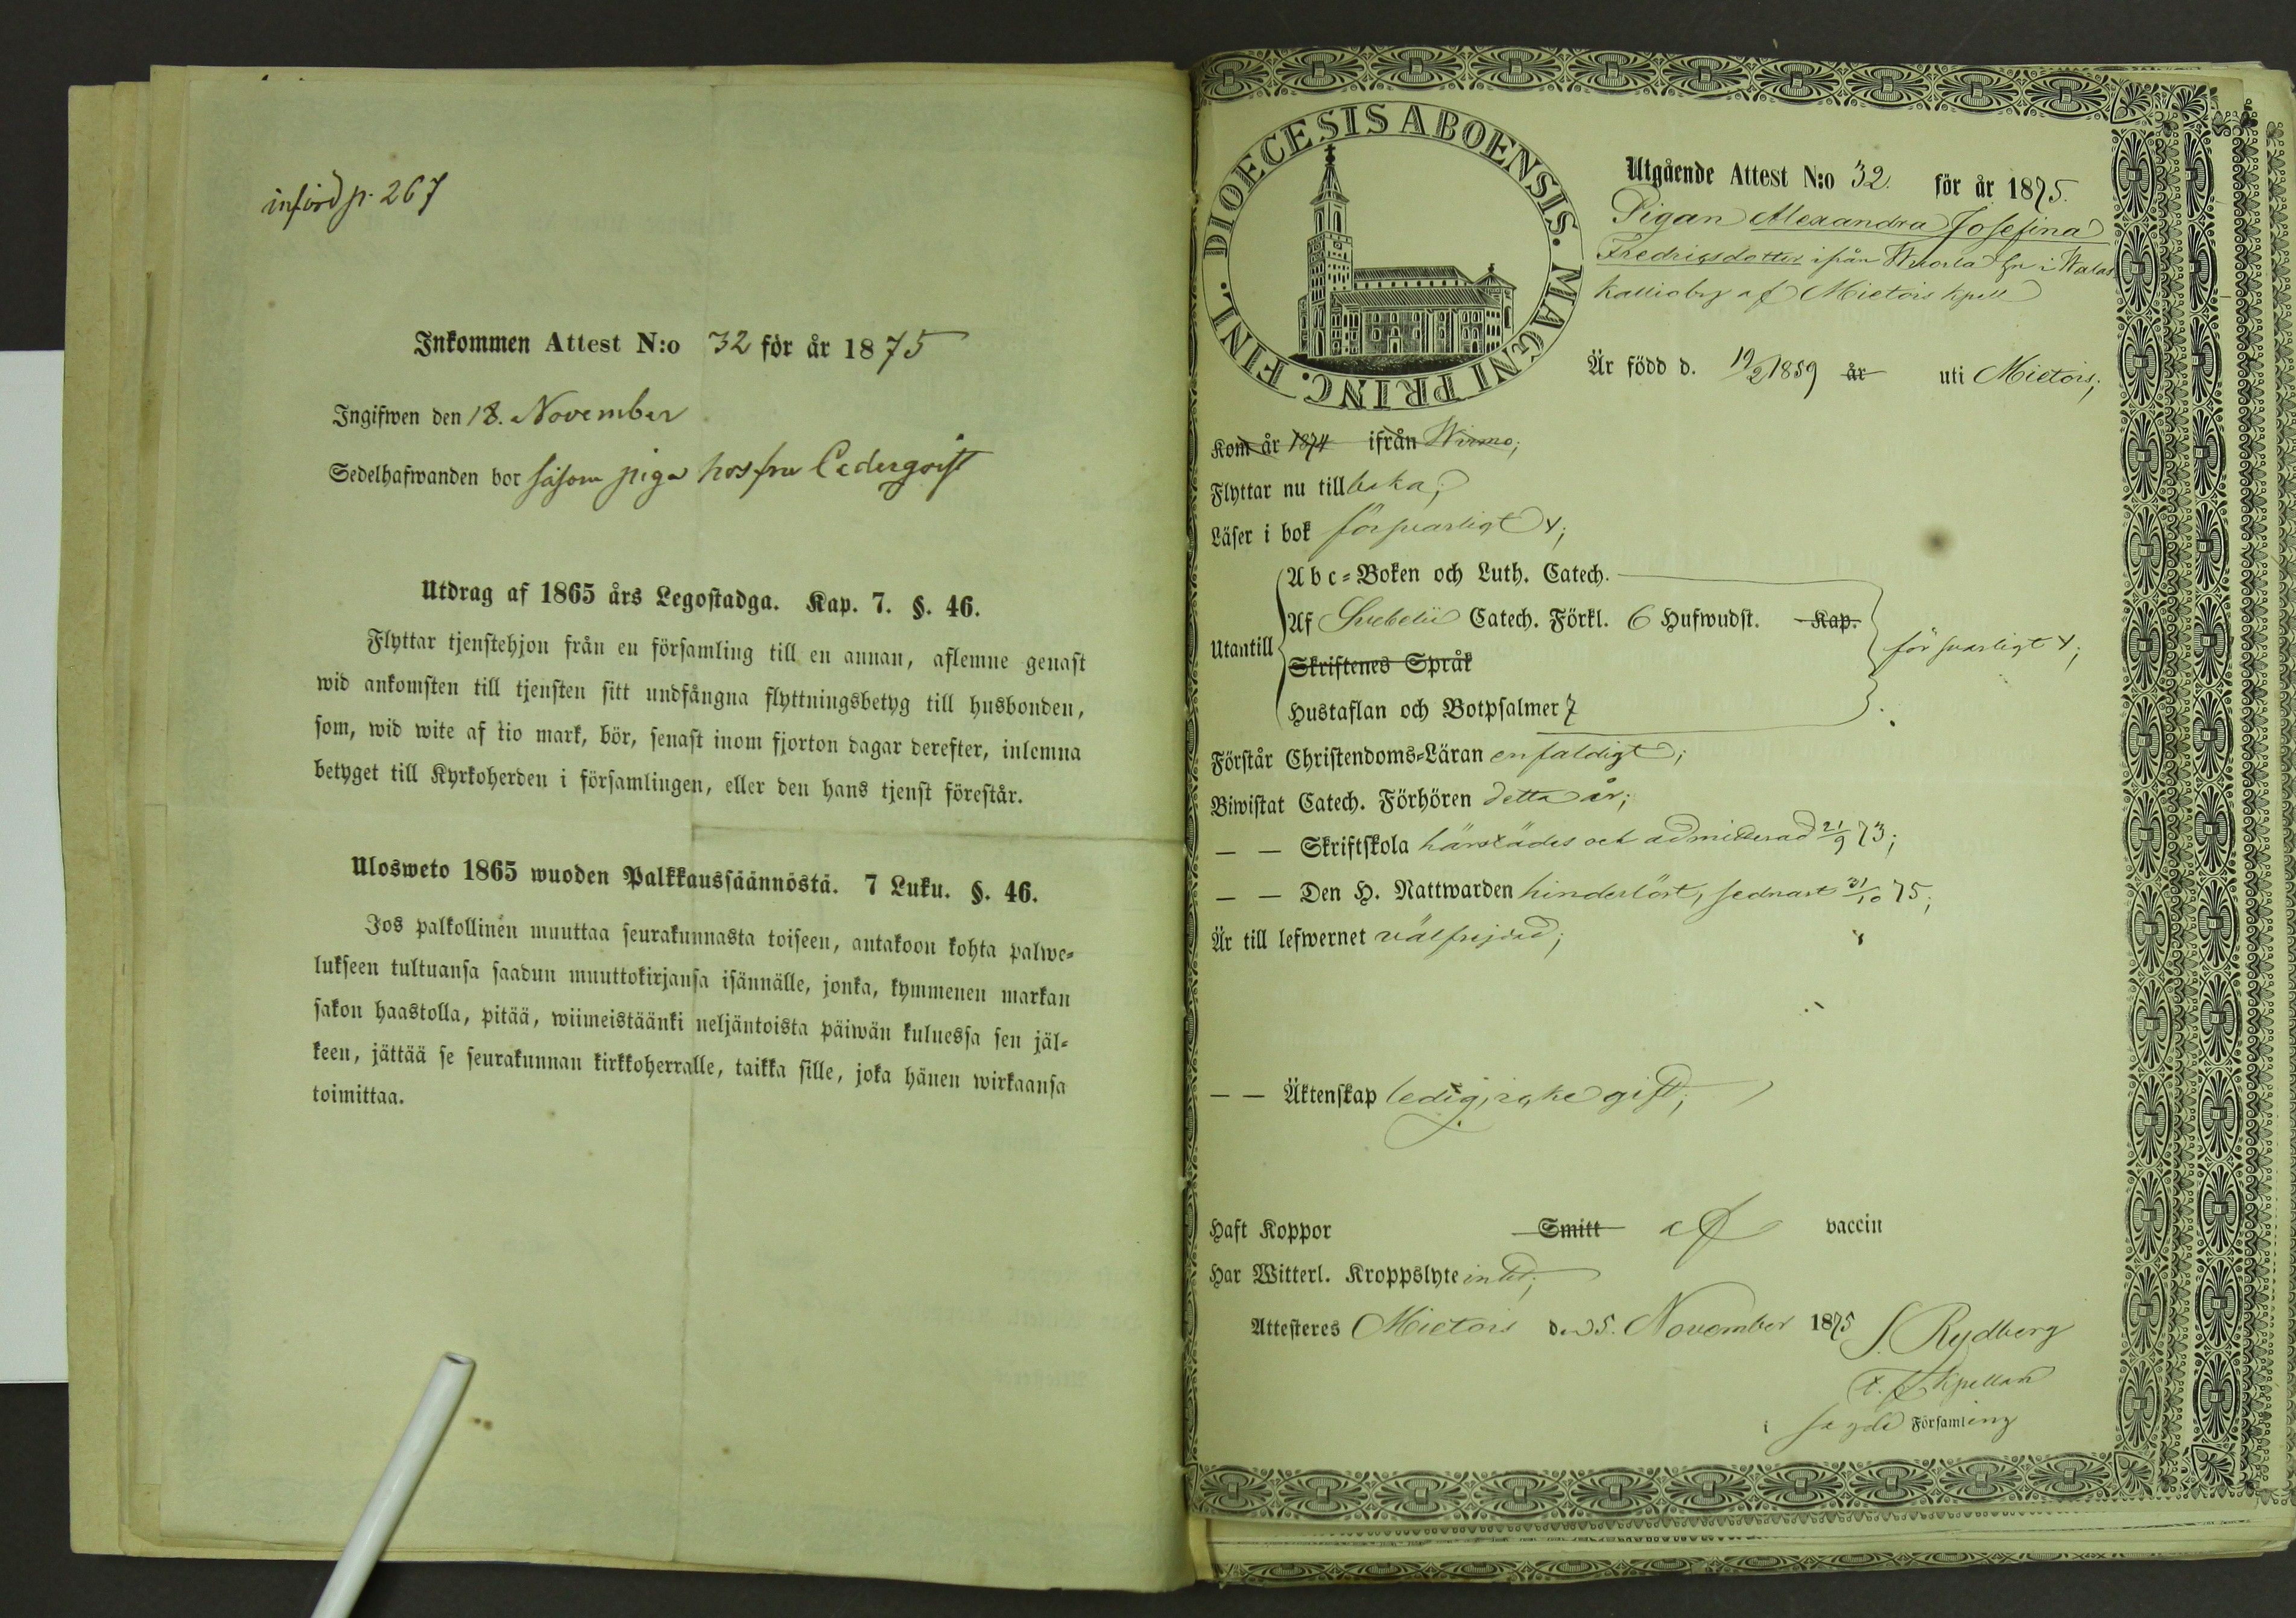 införd p. 267
Inkommen Attest N:o 32 för år 1875
Ingifwen den 18. November
Sedelhafwanden bor såsom piga hos fru Cederqvist
Utdrag af 1865 års Legostadga. Kap. 7. §. 46.
Flyttar tjenstehjon från en församling till en annan, aflemne genast
wid ankomsten till tjensten sitt undfångna flyttningsbetyg till husbonden,
som, wid wite af tio mark, bör, senast inom fjorton dagar derefter, inlemna
betyget till Kyrkoherden i församlingen, eller den hans tjenst förestår.
Ulosweto 1865 wuoden Palkkaussäännöstä. 7 Luku. §. 46.
Jos palkollinen muuttaa seurakunnasta toiseen, antakoon kohta palwe-
lukseen tultuansa saadun muuttokirjansa isännälle, jonka, kymmenen markan
sakon haastolla, pitää, wiimeistäänki neljäntoista päiwän kuluessa sen jäl-
keen, jättää se seurakunnan kirkkoherralle, taikka sille, joka hänen wirkaansa
toimittaa.
DIOECESIS ABOENSIS. MAGNI PRINC. FINL.
Utgående Attest N:o 32. för år 1875.
Pigan Alexandra Josefina
Fredrigsdotter ifrån i
Kallio by af Mietois kpell
Är född d. 19/2 1859 år uti Mietois;
Kom år 1874 ifrån Wirmo;
Flyttar nu tillbaka;
Läser i bok försvarligt +;
Abc-Boken och Luth. Catech.
Utantill Af Svebelii Catech. Förkl. 6 Hufwudst. Kap. försvarligt +;
Skriftenes Språk
Hustaflan och Botpsalmer 7
Förstår Christendoms-Läran enfaldigt;
Biwistat Catech. Förhören detta år;
— — Skriftskola härstädes och admitterad 21/9 73;
— — Den H. Nattwarden hinderlöst, sednast 31/10 75;
Är till lefwernet välfrejdad;
— — Äktenskap ledig, icke gift;
Haft Koppor Smitt af vaccin
Har Witterl. Kroppslyte intet;
Attesteres Mietois den 5. November 1875 S. Rydberg
t. f. Kpellan
i sagde Församling